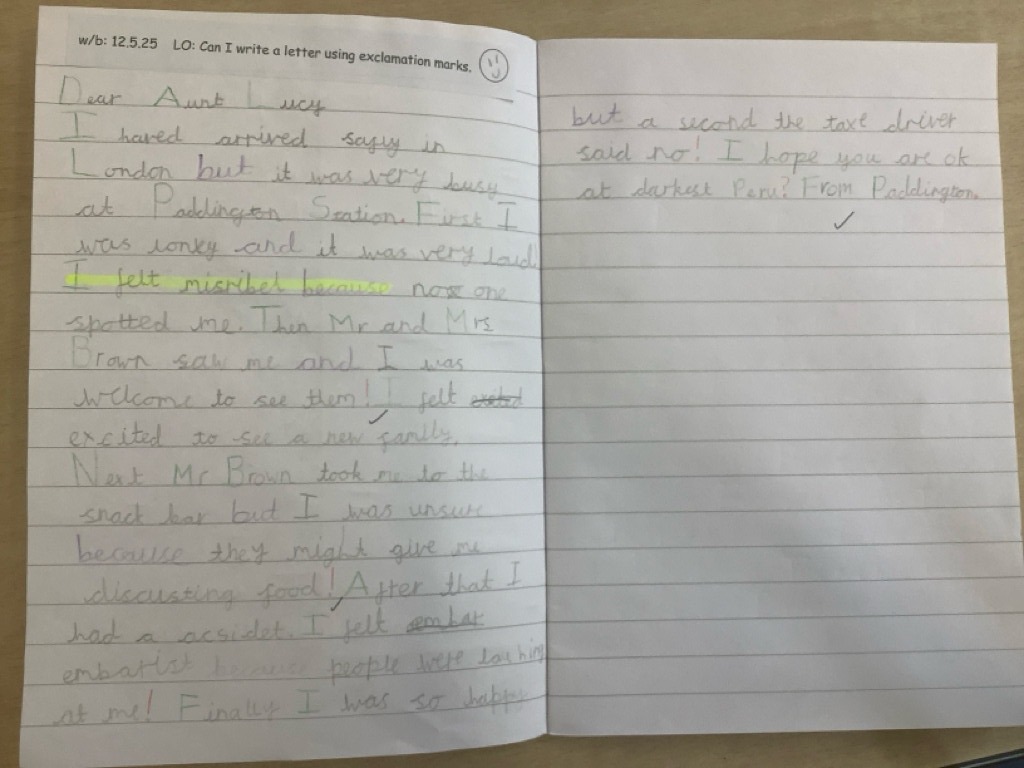 w/b: 12.5.25 LO: Can I write a letter using exclamation marks.
Dear Aunt Lucy
I hared arrived safly in
London but it was very busy
at Paddington Station. First I
was lonky and it was very loud.
I felt misribel because now one
spotted me. Then Mr and Mrs
Brown saw me and I was
welcome to see them! I felt
excited to see a new family.
Next Mr Brown took me to the
snack bar but I was unsure
because they might give me
discusting food! After that I
had a acsidet. I felt embar
embarist because people were lauhing
at me! Finally I was so happy
but a second the taxe driver
said no! I hope you are ok
at darkest Peru? From Paddington.